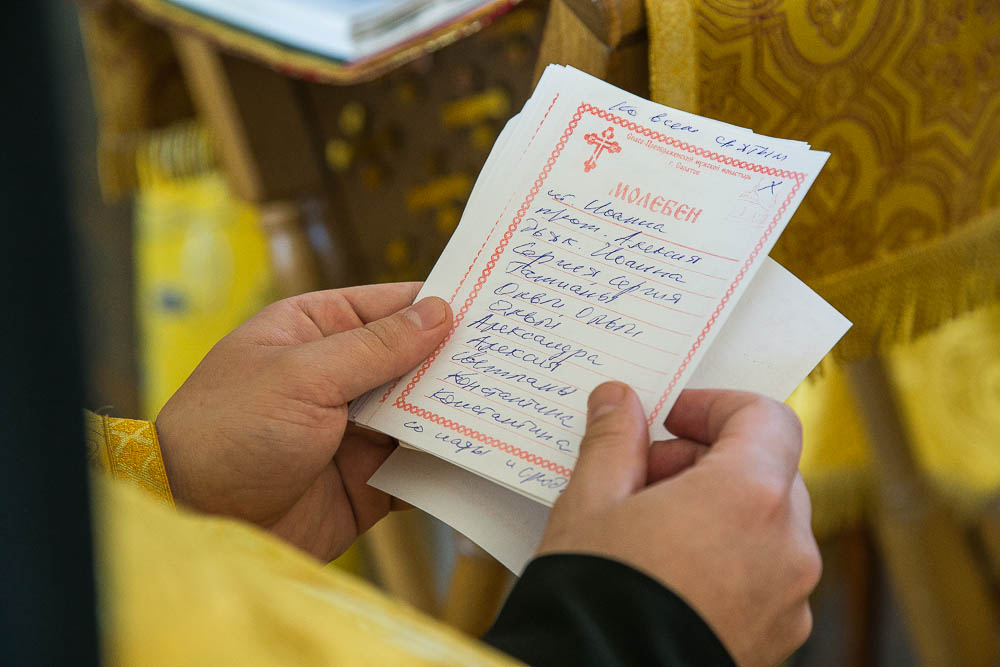 Ко всем святым
Спасо-Преображенский мужской монастырь
г. Саратов
X
МОЛЕБЕН
Иоанна
прот. Алексия
Иоанна
Сергия, Сергия
Татианы
Ольги, Ольги
Ольги
Александра
Алексия
Светланы
Константина
Константина
со чады и срод